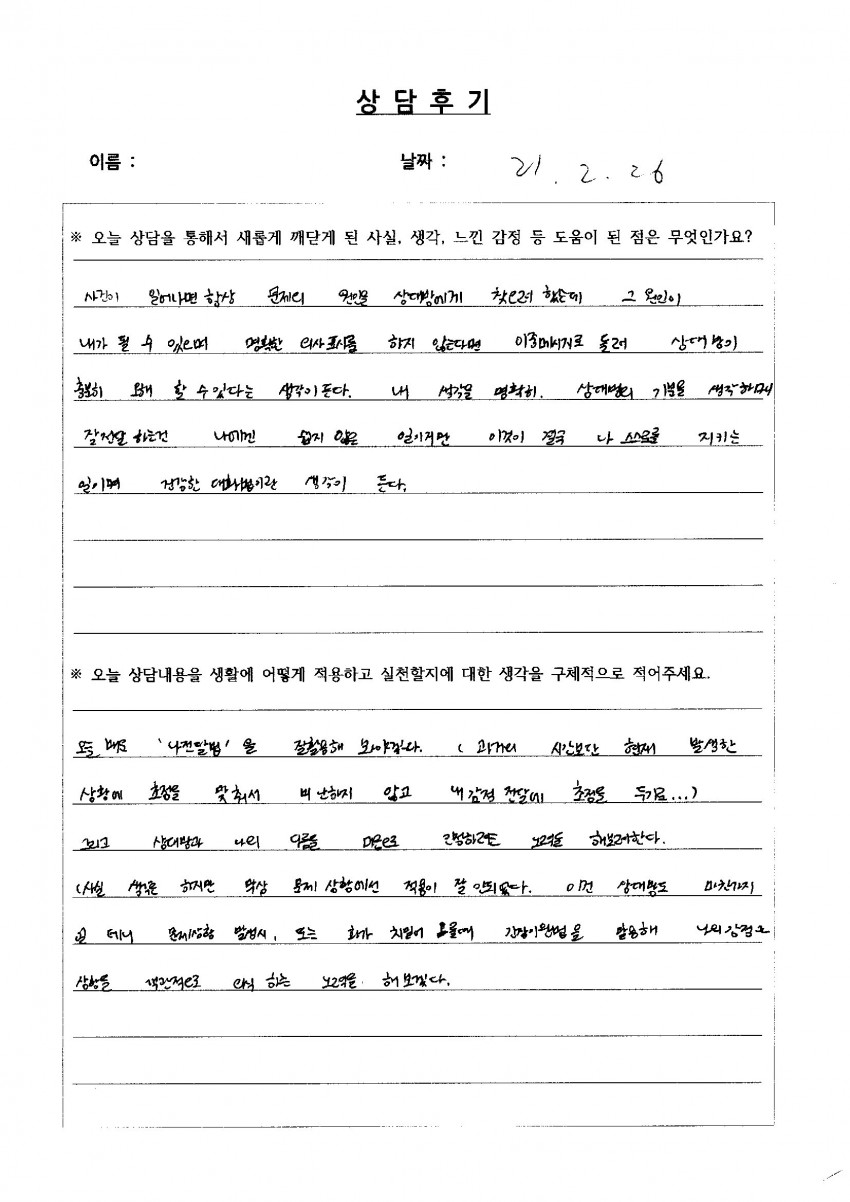 상 담 후 기
이름 :
날짜 : 21. 2. 26
※ 오늘 상담을 통해서 새롭게 깨닫게 된 사실, 생각, 느낀 감정 등 도움이 된 점은 무엇인가요?
사건이 일어나면 항상 문제의 원인을 상대방에게 찾으려 했는데 그 원인이
내가 될 수 있으며 명확한 의사표시를 하지 않는다면 이중메시지로 들려 상대방이
충분히 오해 할 수 있다는 생각이 든다. 내 생각을 명확히. 상대방의 기분을 생각하며
잘전달 하는건 나에겐 쉽지 않은 일이지만 이것이 결국 나 스스로를 지키는
일이며 건강한 대화법이란 생각이 든다.
※ 오늘 상담내용을 생활에 어떻게 적용하고 실천할지에 대한 생각을 구체적으로 적어주세요.
오늘 배운 '나전달법'을 잘활용해 보아야겠다. ( 과거의 시간보단 현재 발생한
상황에 초점을 맞춰서 비난하지 않고 내감정 전달에 초점을 두기로...)
그리고 상대방과 나의 다름을 마음으로 인정하려는 노력을 해보려한다.
(사실 생각은 하지만 막상 문제 상황에선 적용이 잘 안되었다. 이건 상대방도 마찬가지
일 테니 문제상황 발생시, 또는 화가 치밀어 오를때 긴장이완법을 활용해 나의감정과
상황을 객관적으로 인식 하는 노력을 해보겠다.